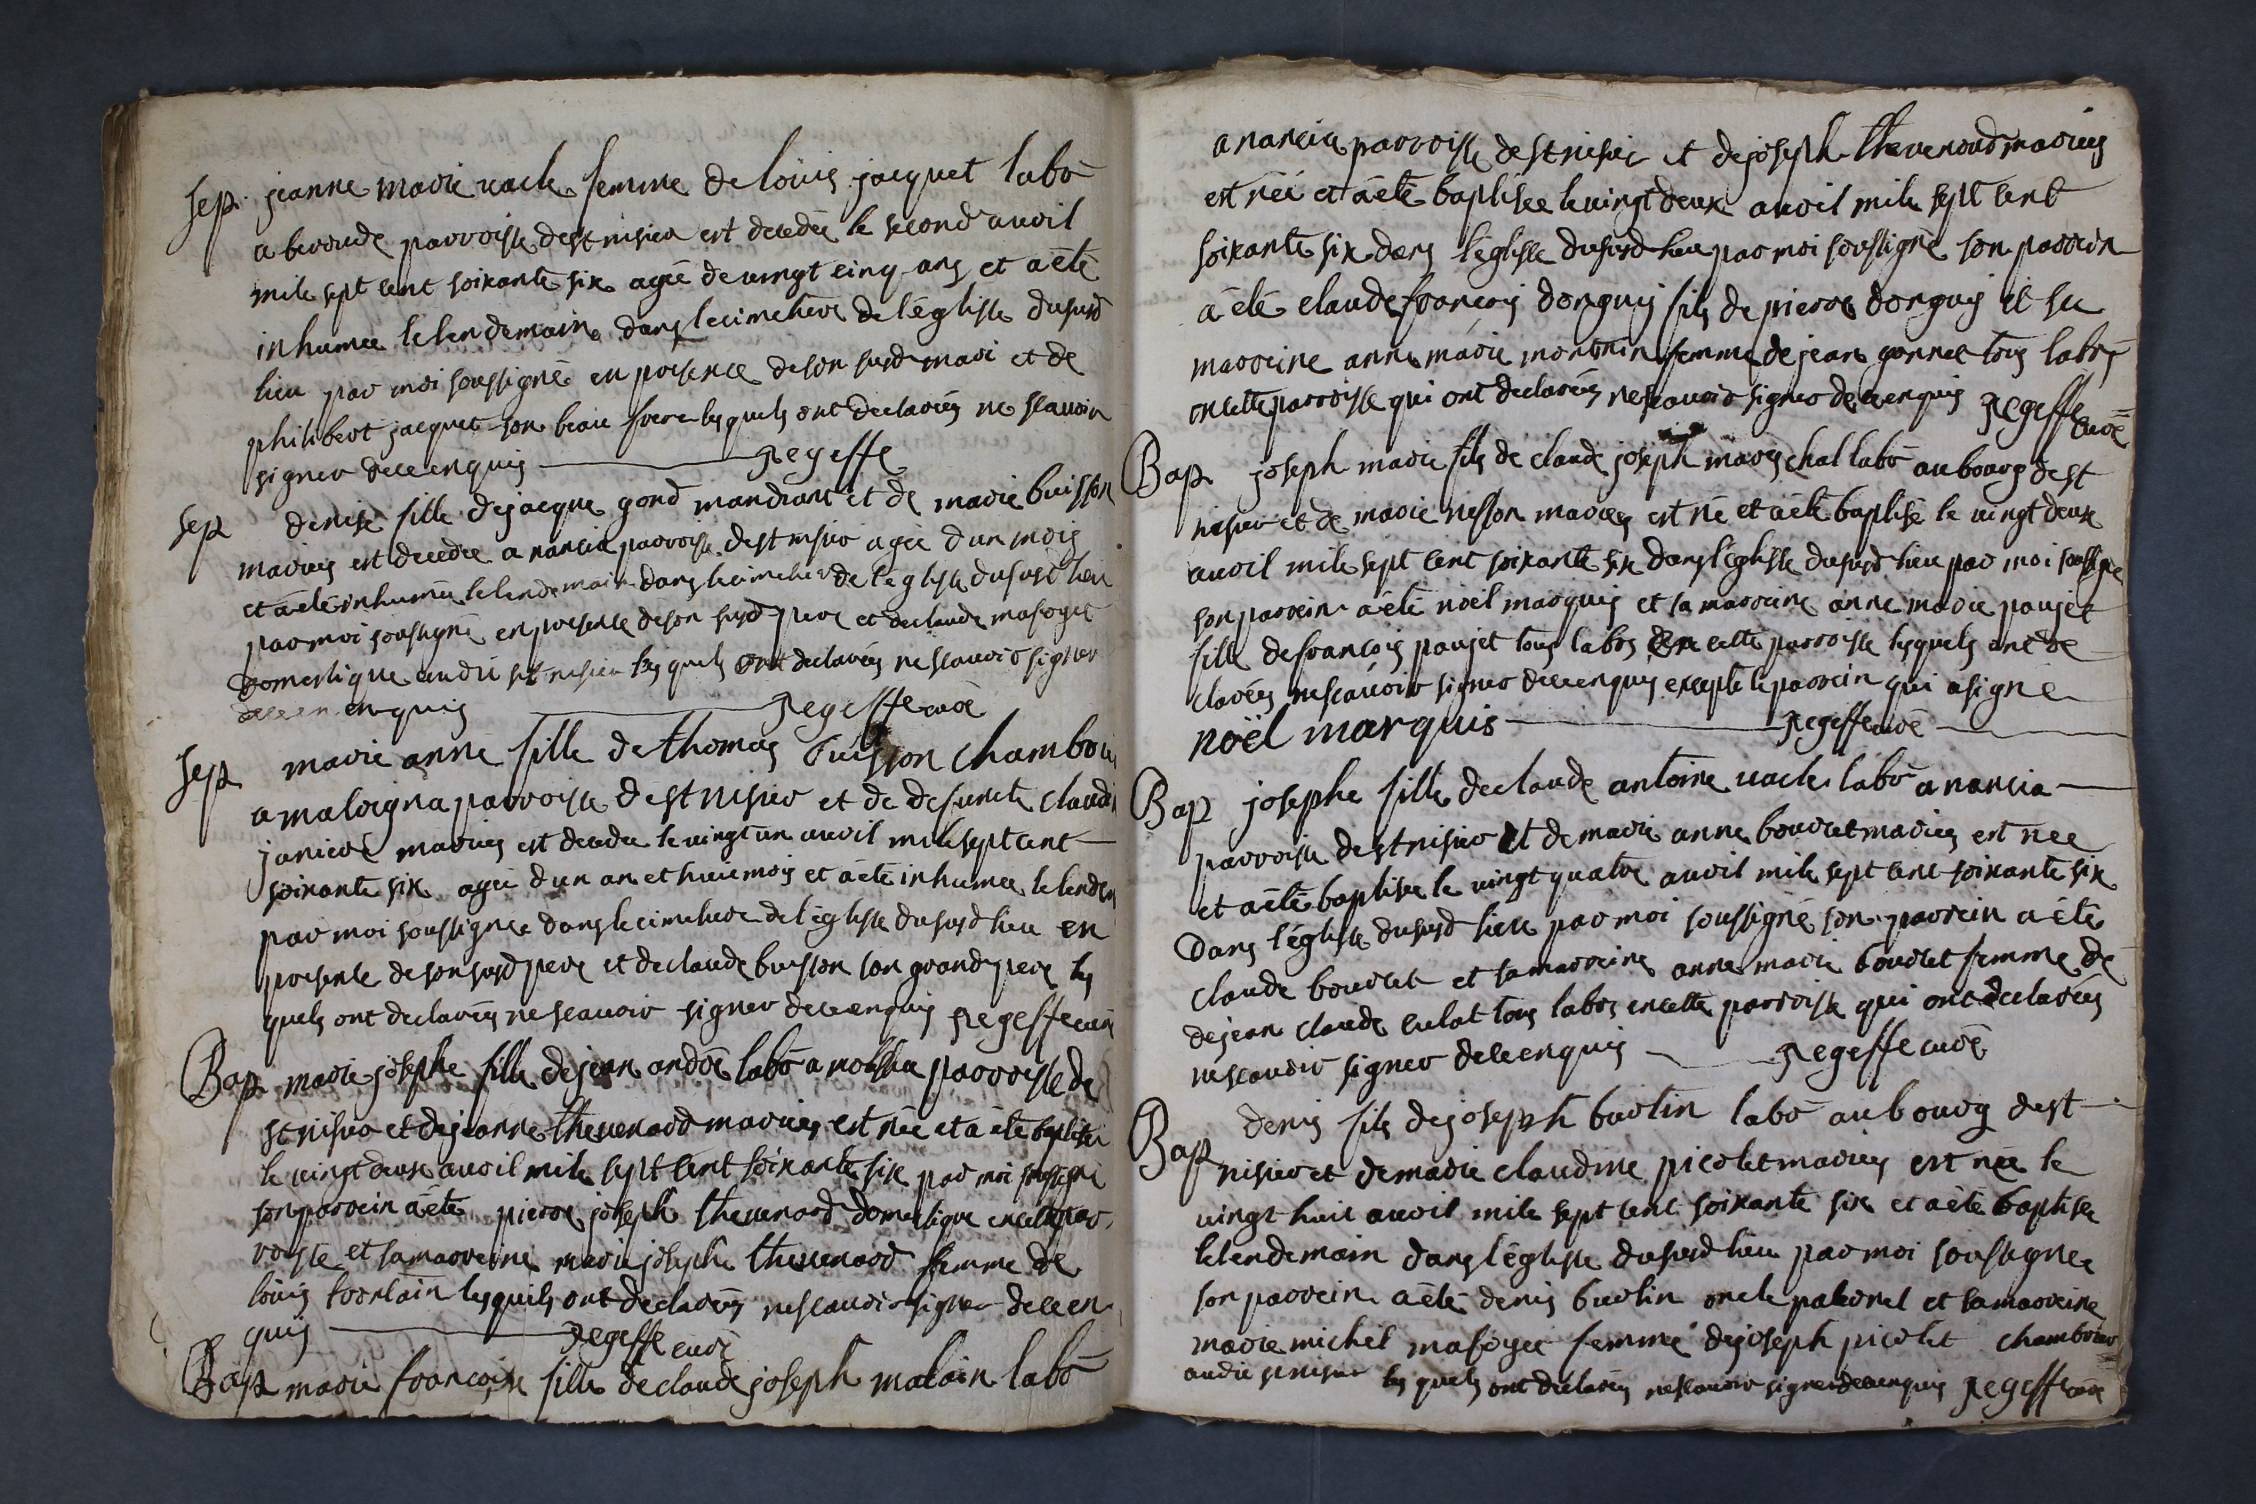 Sep. jeanne marie vacle femme de loüis jacquet labō
a beroude parroisse de st nisier est decedée le second avril
mile sept cent soixante six agée de vingt cinq ans et a été
inhumée le lendemain dans le cimetiere de l'églisse dususd
lieu par moi soussigné en presence de son susd mari et de
philibert jacquet son beau frere lesquels ont declarées ne scauoir
signer de ce enquis Regeffe
Sep denise fille de jacque gond mandiant et de marie buisson
mariés est decedée a nancia parroisse de st nisier agée d'un mois
et a été inhumée le lendemain dans le cimetier de l'églisse dususd lieu
par moi soussigné en presence de son susd pere et de claude mafoyet
domestique audit st nisier lesquels ont declarées ne scauoir signer
de ce enquis Regeffe curē
Sep marie anne fille de thomas buisson chambrou
a malvigna parroisse de st nisier et de defuncte claud
janiere mariés est decedee le vingt un avril mile sept cent
soixante six agée d'un an et huit mois et a été inhumée le lendem
par moi soussigné dans le cimetiere de l'églisse dususd lieu en
presence de son susd pere et de claude buisson son grand pere les
quels ont declarées ne scauoir signer de ce enquis Regeffe curē
Bap marie josephe fille de jean andrē labō a parroisse de
st nisier et de jeanne thevenard mariés est née et a été baptisée
le vingt deux avril mile sept cent soixante six par moi soussigné
son parrein a été pierre joseph thevenard domestique en cette par
roisse et sa marreine marie josephe thevenard femme de
loüis lesquels ont declarées ne scauoir signer de ce en
quis Regeffe curē
Bap marie francoise fille de claude joseph malain labō
a nancia parroisse de st nisier et de joseph thevenard mariés
est née et a été baptisée le vingt deux avril mile sept cent
soixante six dans l'églisse dususd lieu par moi soussigné son parrein
a été claude françois donguy fils de pierre donguy et sa
marreine anne marie montnin femme de jean gonnet tous labrs
en cette parroisse qui ont declarées ne scauoir signer de ce enquis Regeffe curē
Bap joseph marie fils de claude joseph mareschal labō au bourg de st
nisier et de marie nesson mariés est né et a été baptisé le vingt deux
avril mile sept cent soixante six dans l'églisse dususd lieu par moi soussigné
son parrein a été noël marquis et sa marreine anne marie paujet
fille de francois paujet tous labrs en cette parroisse lesquels ont dé
clarées ne scauoir signer de ce enquis excepté le parrein qui a signé
noël marquis Regeffe curē
Bap josephe fille de claude antoine vacle labō a nancia
parroisse de st nisier et de marie anne bouvret mariés est née
et a été baptisée le vingt quatre avril mile sept cent soixante six
dans l'églisse dususd lieu par moi soussigné son parrein a été
claude bouvret et sa marreine anne marie bouvret femme de
de jean claude culat tous labrs en cette parroisse qui ont declarées
ne scauoir signer de ce enquis Regeffe curē
Bap denis fils de joseph burlin labō au bourg de st
nisier et de marie claudine picolet mariés est née le
vingt huit avril mile sept cent soixante six et a été baptisée
le lendemain dans l'églisse dususd lieu par moi soussigné
son parrein a été denis burlin oncle paternel et sa marreine
marie michel mafoyet femme de joseph picolet chambrier
audit st nisier lesquels ont declarées ne scauoir signer de ce enquis Regeffe curē